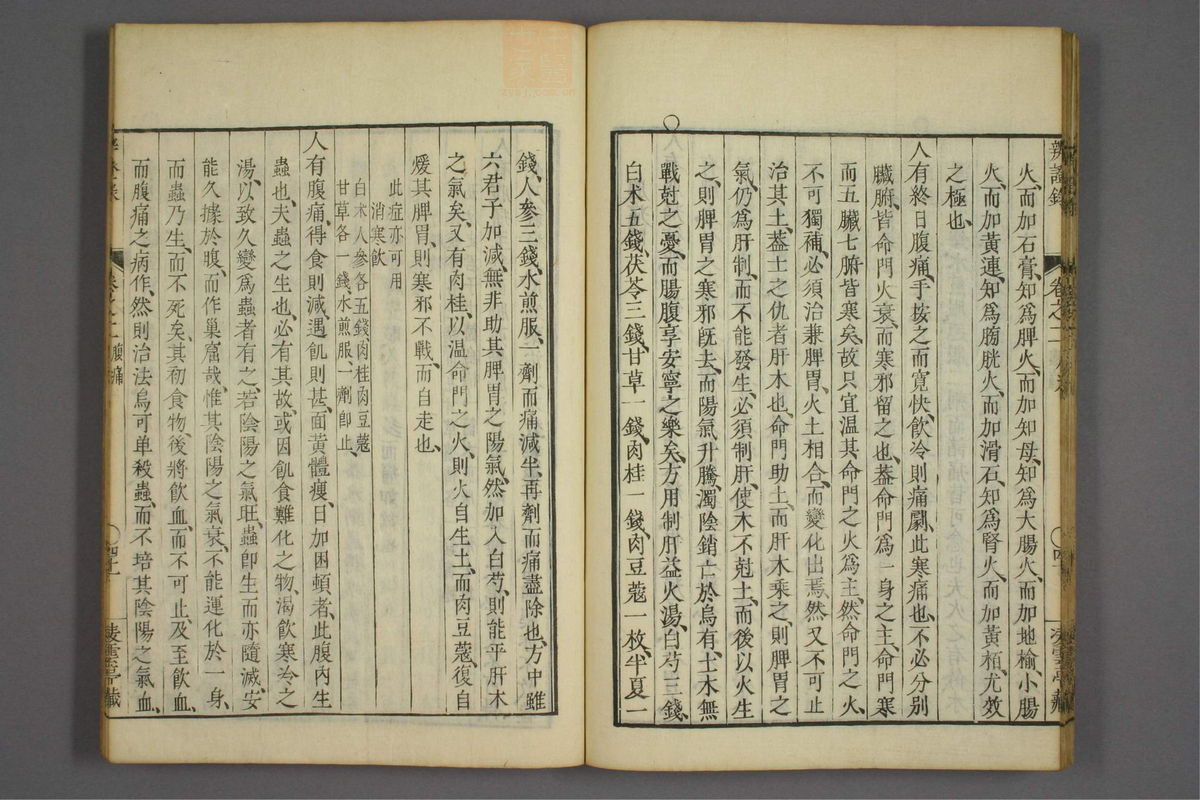 辨證錄
卷之二
凌雲亭藏
火、而加石膏、知爲脾火、而加知母、知爲大腸火、而加地榆、小腸
火、而加黃連、知爲膀胱火、而加滑石、知爲腎火、而加黃栢、尤效
之極也、
人有終日腹痛、手按之而寬快、飲冷則痛劇、此寒痛也、不必分別
臟腑、皆命門火衰、而寒邪留之也、蓋命門爲一身之主、命門寒
而五臟七腑皆寒矣、故只宜温其命門之火爲主、然命門之火、
不可獨補、必須治兼脾胃、火土相合、而變化出焉、然又不可止
治其土、蓋土之仇者肝木也、命門助土、而肝木乘之、則脾胃之
氣、仍爲肝制、而不能發生、必須制肝、使木不尅土、而後以火生
之、則脾胃之寒邪旣去、而陽氣升騰、濁陰銷亡於烏有、土木無
戰尅之憂、而腸腹享安寧之樂矣、方用制肝益火湯、白芍三錢、
白术五錢、茯苓三錢、甘草一錢、肉桂一錢、肉豆蔻一枚、半夏一
錢、人參三錢、水煎服、一劑而痛減半、再劑而痛盡除也、方中雖
六君子加減、無非助其脾胃之陽氣、然加入白芍、則能平肝木
之氣矣、又有肉桂、以温命門之火、則火自生土、而肉豆蔻、復自
煖其脾胃、則寒邪不戰、而自走也、
此症亦可用
消寒飲
白术人參各五錢肉桂肉豆蔻
甘草各一錢水煎服一劑卽止、
人有腹痛、得食則減、遇飢則甚、面黃體瘦、日加困頓者、此腹內生
蟲也、夫蟲之生也、必有其故、或因飢食難化之物、渴飲寒冷之
湯、以致久變爲蟲者有之、若陰陽之氣旺、蟲卽生而亦隨滅、安
能久據於腹、而作巢窟哉、惟其陰陽之氣衰、不能運化於一身、
而蟲乃生、而不死矣、其初食物、後將飲血、而不可止、及至飲血、
而腹痛之病作、然則治法烏可单殺蟲、而不培其陰陽之氣血、
卷之二
腹痛
四十一